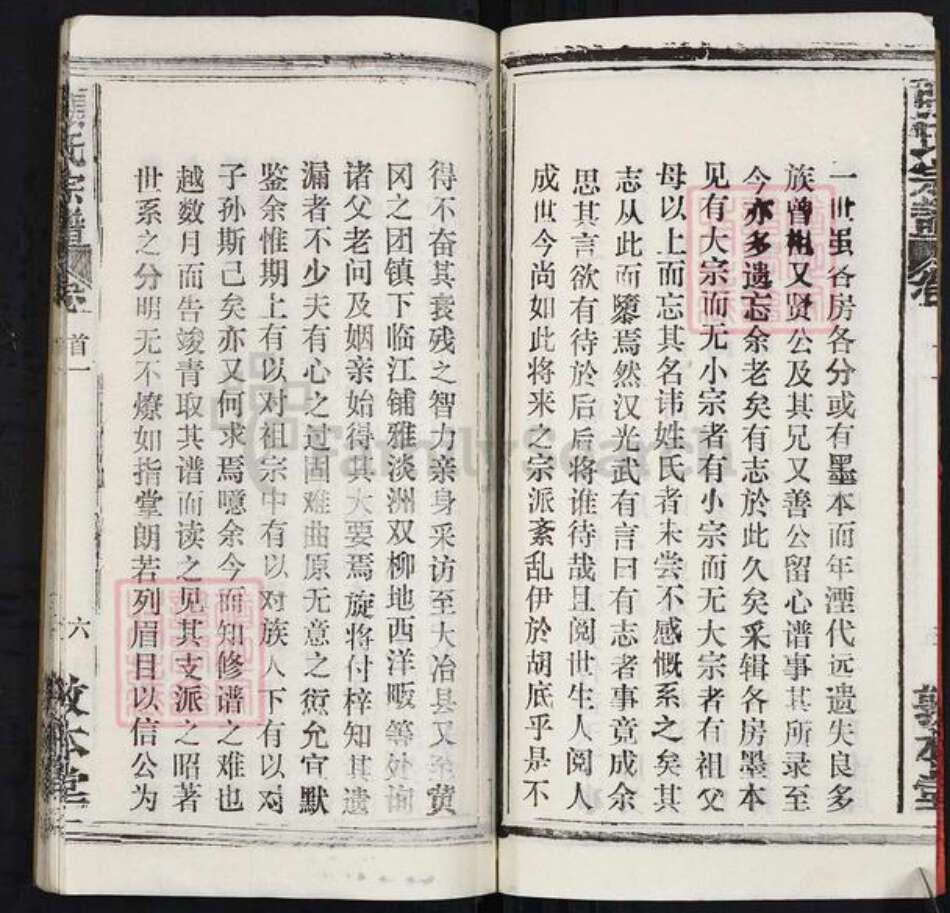 一世虽各房各分或有墨本而年湮代远遗失良多
族曾相又贤公及其兄又善公留心谱事其所录至
今亦多遗忘余老矣有志於此久矣采辑各房墨本
见有大宗而无小宗者有小宗而无大宗者有祖父
母以上而忘其名讳姓氏者未尝不感慨系之矣其
志从此而隳焉然汉光武有言曰有志者事竟成余
思其言欲有待於后后将谁待哉且阅世生人阅人
成世今尚如此将来之宗派紊乱伊於胡底乎是不
得不奋其衰残之智力亲身采访至大冶县又至黄
冈之团镇下临江铺雅淡洲双柳地西洋畈等处询
诸父老问及姻亲始得其大要焉旋将付梓知其遗
漏者不少夫有心之过固难曲原无意之愆允宜默
鉴余惟期上有以对祖宗中有以对族人下有以对
子孙斯己矣亦又何求焉噫余今而知修谱之难也
越数月而告竣青取其谱而读之见其支派之昭著
世系之分明无不燎如指掌朗若列眉目以信公为
張氏宗譜
卷
首一
六
敦本堂
FamilySearch